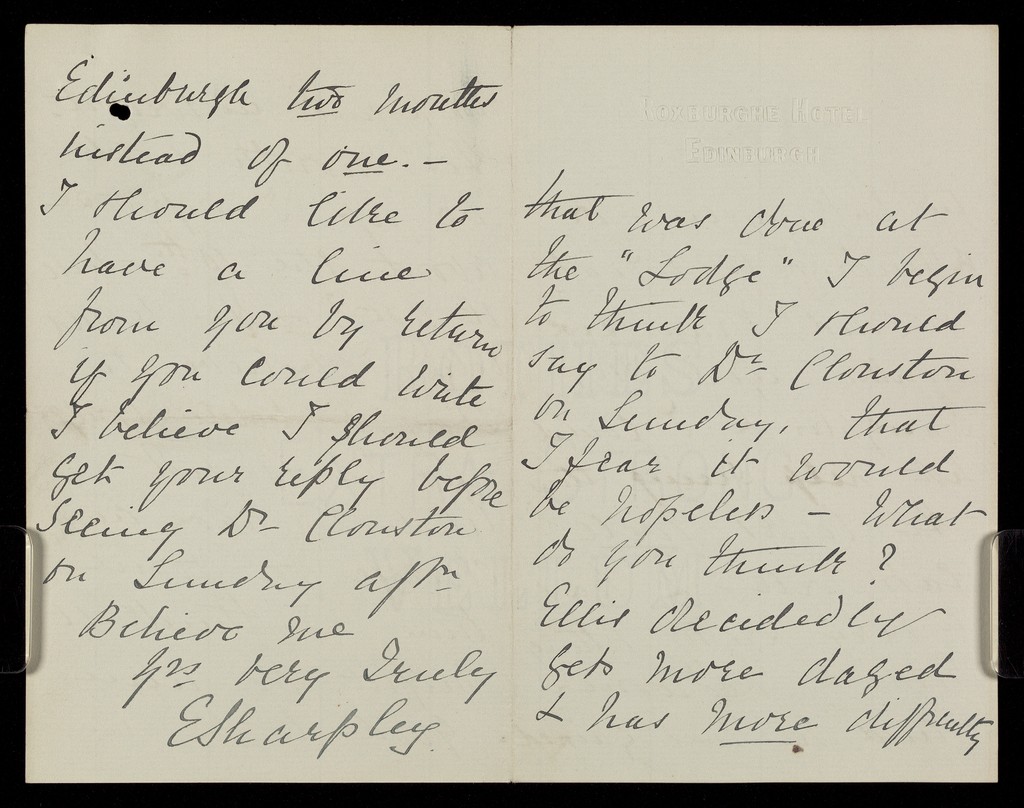 Edinburgh two months
instead of one. –
I should like to
have a line
from you by return
if you could write
I believe I should
get your reply before
seeing Dr Clouston
on Sunday aftn
Believe me
Yrs very Truly
ESharpley.
ROXBURGHE HOTEL
EDINBURGH
that was done at
the "Lodge" I begin
to think I should
say to Dr Clouston
on Sunday, that
I fear it would
be hopeless – What
do you think?
Ellis decidedly
gets more dazed
& has more difficulty